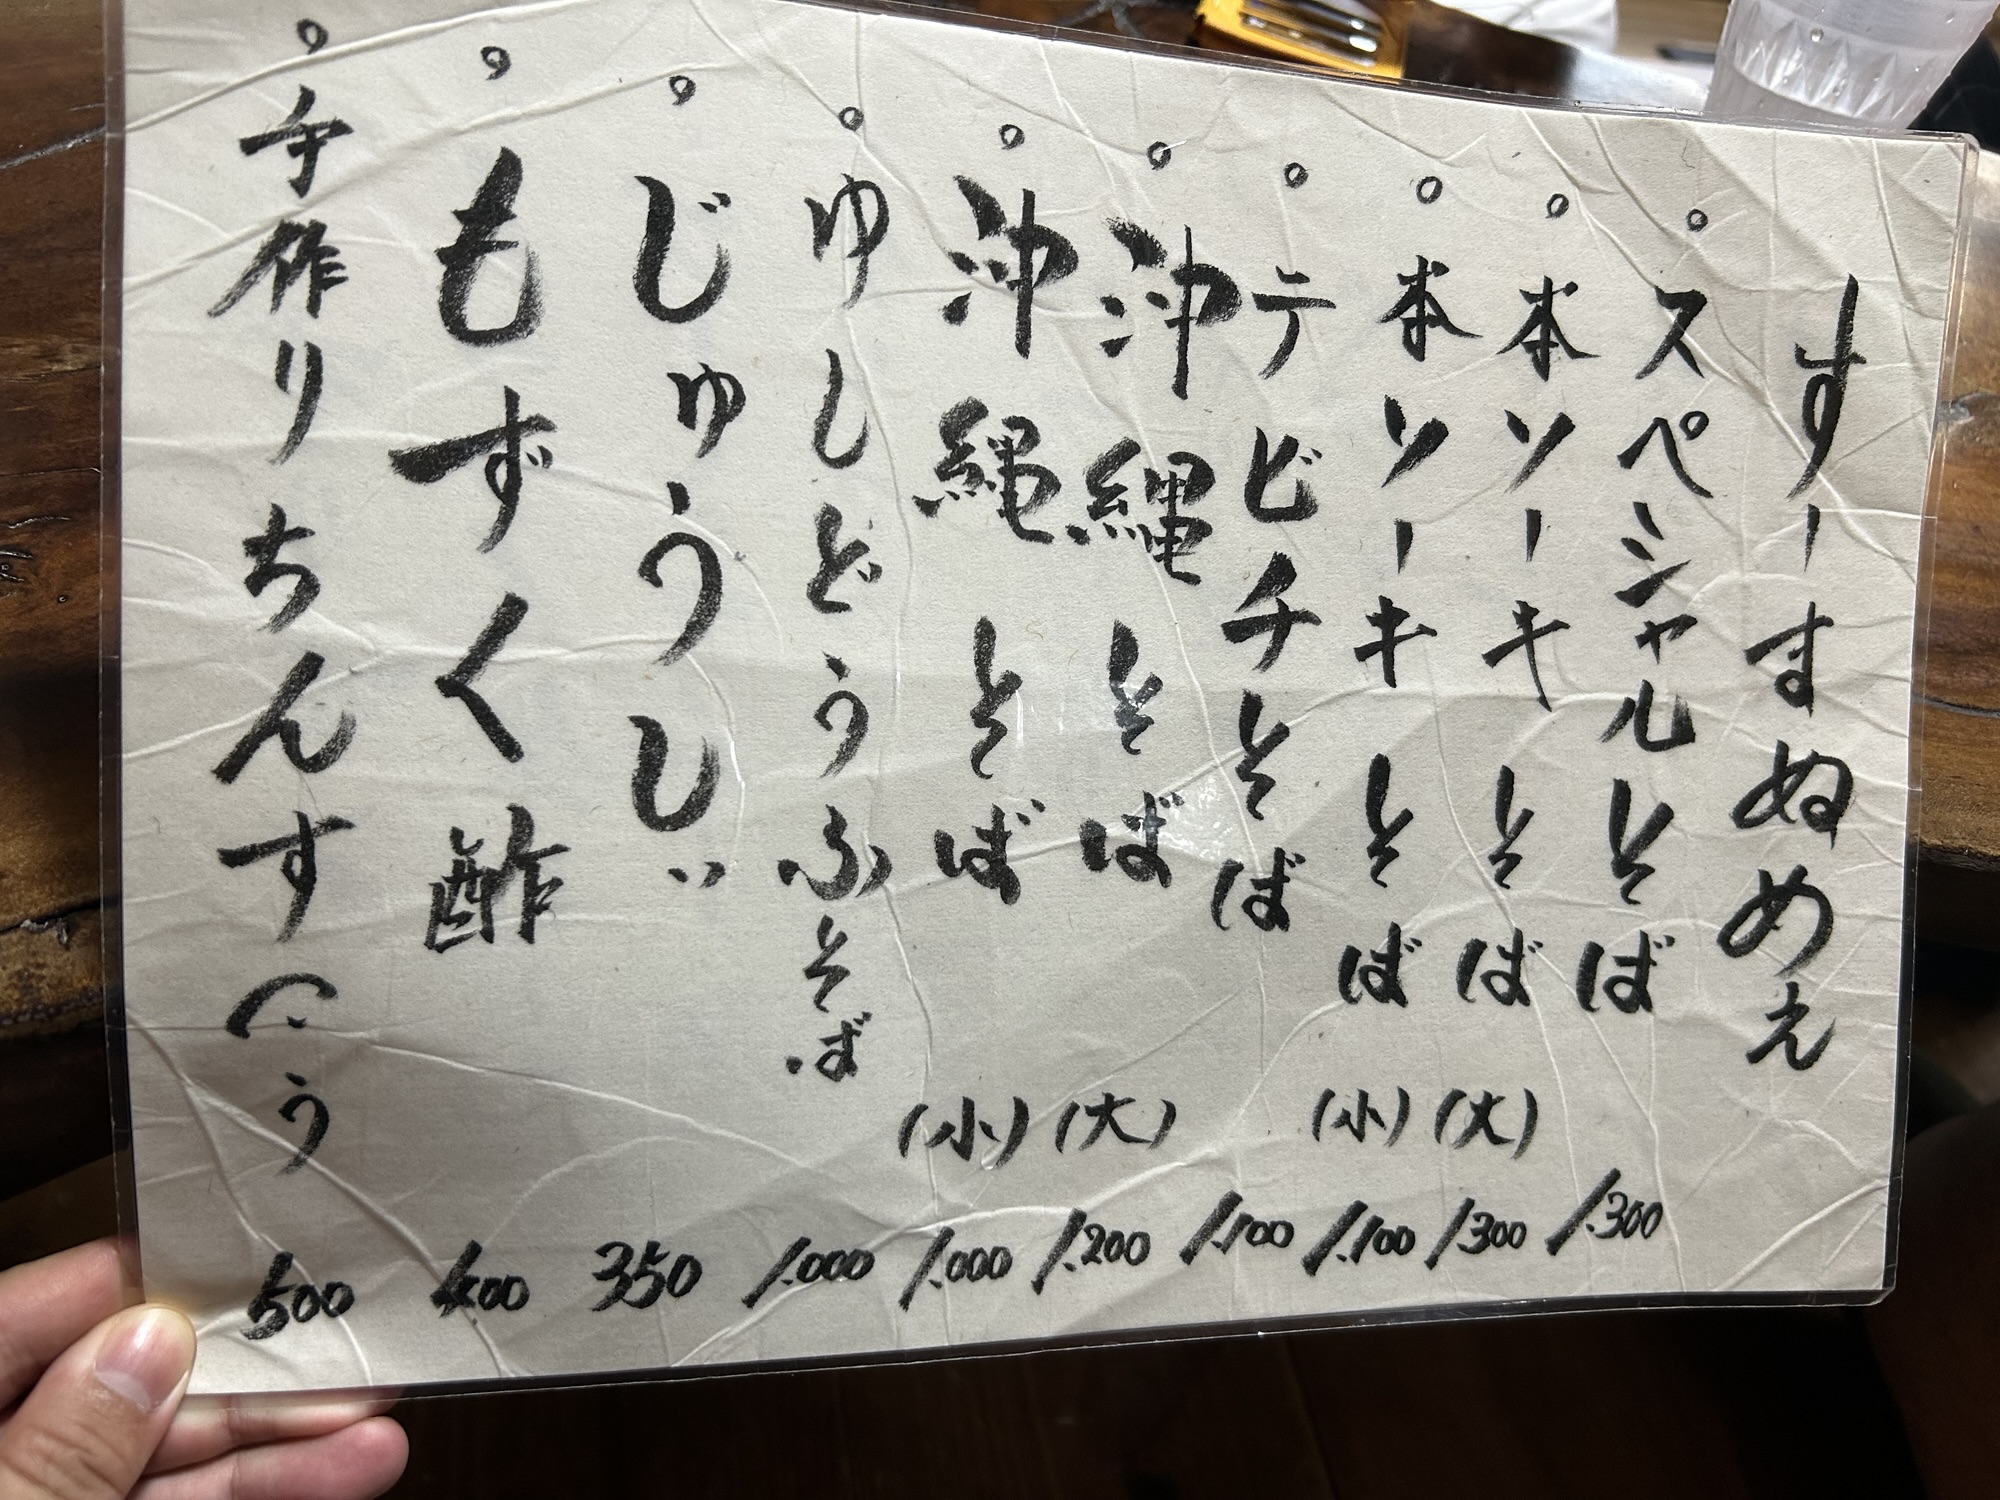 すーすぬめぇ
。スペシャルそば 1.300
。本ソーキそば (大) 1300
。本ソーキそば (小) 1.100
。テビチそば 1.100
。沖縄そば (大) 1.200
。沖縄そば (小) 1.000
。ゆしどうふそば 1.000
。じゅうしぃ 350
。もずく酢 400
。手作りちんすこう 500